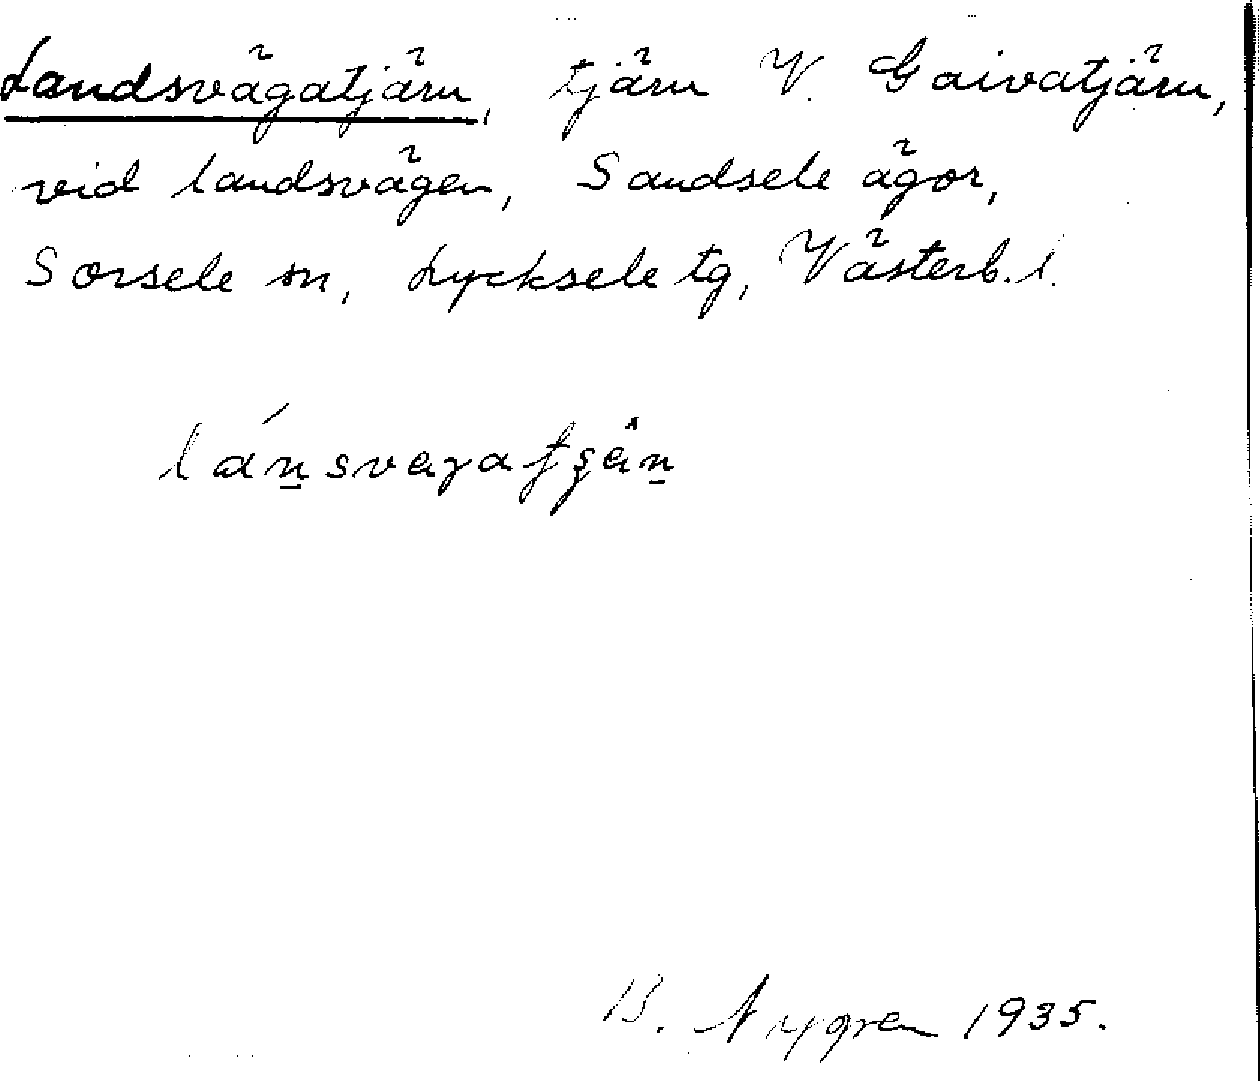 Landsvägatjärn, tjärn V. Gaivatjärn,
vid landsvägen, Sandsele ägor,
Sorsele sn, Lycksele tg, Västerb. l.
B. Nygren 1935.